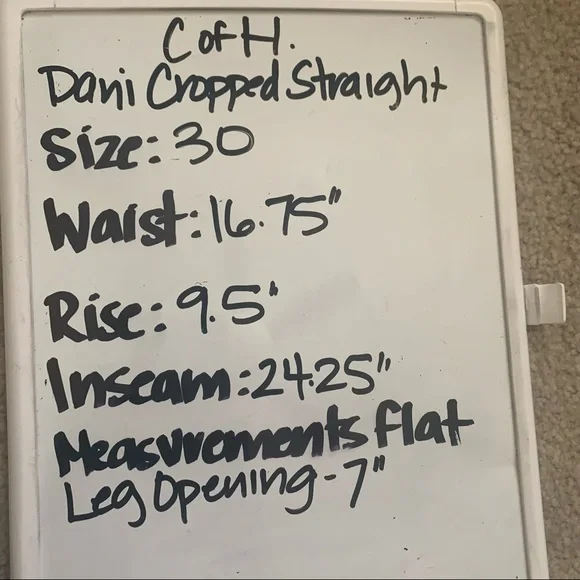 C of H.
Dani Cropped Straight
Size: 30
Waist: 16.75"
Rise: 9.5"
Inseam: 24.25"
Measurements flat
Leg Opening - 7"